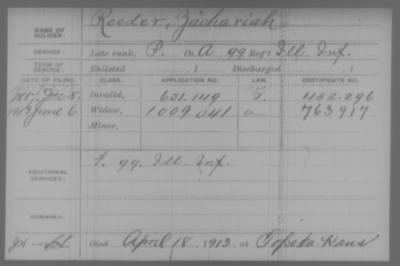 NAME OF SOLDIER: Reeder, Zachariah
SERVICE: Late rank, P. Co. A, 99 Reg't Ill. Inf.
TERM OF SERVICE: Enlisted , 1 Discharged , 1
DATE OF FILING. CLASS. APPLICATION NO. LAW CERTIFICATE NO.
5. Invalid, 631.149 452.296
1913 June 6 Widow, 1009 041 763917
Minor,
ADDITIONAL SERVICES: F. 99. Ill. Inf.
REMARKS:
Died April 18, 1913, at Topeka Kans